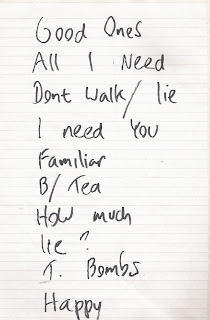 Good Ones
All I Need
Dont Walk/ lie
I need You
Familiar
B/ Tea
How much
lie ?
T. Bombs
Happy